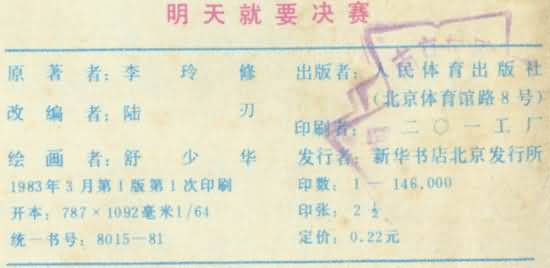 明天就要决赛
原著者：李玲修
改编者：陆刃
绘画者：舒少华
1983年3月第1版第1次印刷
开本：787×1092毫米1/64
统一书号：8015—81
出版者：人民体育出版社
（北京体育馆路8号）
印刷者：一二〇一工厂
发行者：新华书店北京发行所
印数：1—146,000
印张：2 1/2
定价：0.22元